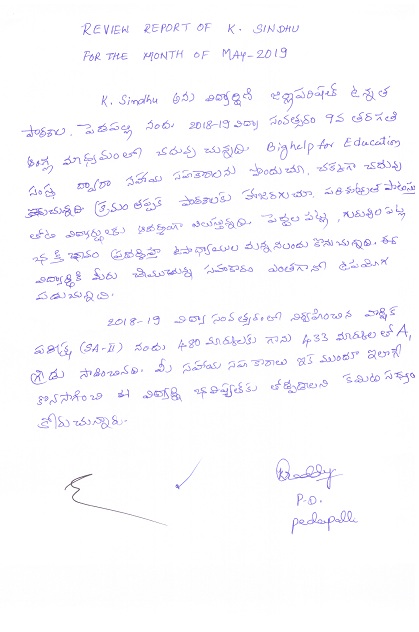 REVIEW REPORT OF K. SINDHU
FOR THE MONTH OF MAY-2019
K. Sindhu అను విద్యార్థిణి జిల్లాపరిషత్ ఉన్నత
పాఠశాల, పెదపల్లి నందు 2018-19 విద్యా సంవత్సరం 9వ తరగతి
ఇంగ్లీషు మాధ్యమంలో చదువు చున్నది. Bighelp for Education
సంస్థ ద్వారా సహాయ సహకారాలను పొందుచూ, చక్కగా చదువు
చున్నది. క్రమం తప్పక పాఠశాలకు హాజరగుచూ,
తోటి విద్యార్థులకు ఆదర్శంగా నిలుస్తున్నది. పెద్దల పట్ల, గురువుల పట్ల
భక్తి భావం ఉపాధ్యాయుల మన్ననలందు కొనుచున్నది. ఈ
విద్యార్థికి మీరు చేయుచున్న సహకారం ఎంతగానో ఉపయోగ
పడుచున్నది.
2018-19 విద్యా సంవత్సరంలో నిర్వహించిన వార్షిక
పరీక్ష (SA-II) నందు 480 మార్కులకు గాను 433 మార్కులతో A1
గ్రేడు సాధించినది. మీ సహాయ సహకారాలు ఇక ముందూ ఇలాగే
కొనసాగించి ఈ విద్యార్థి భవిష్యత్‌కు తోడ్పడాలని కమిటీ
కోరుచున్నారు.
P.D.
pedapalli